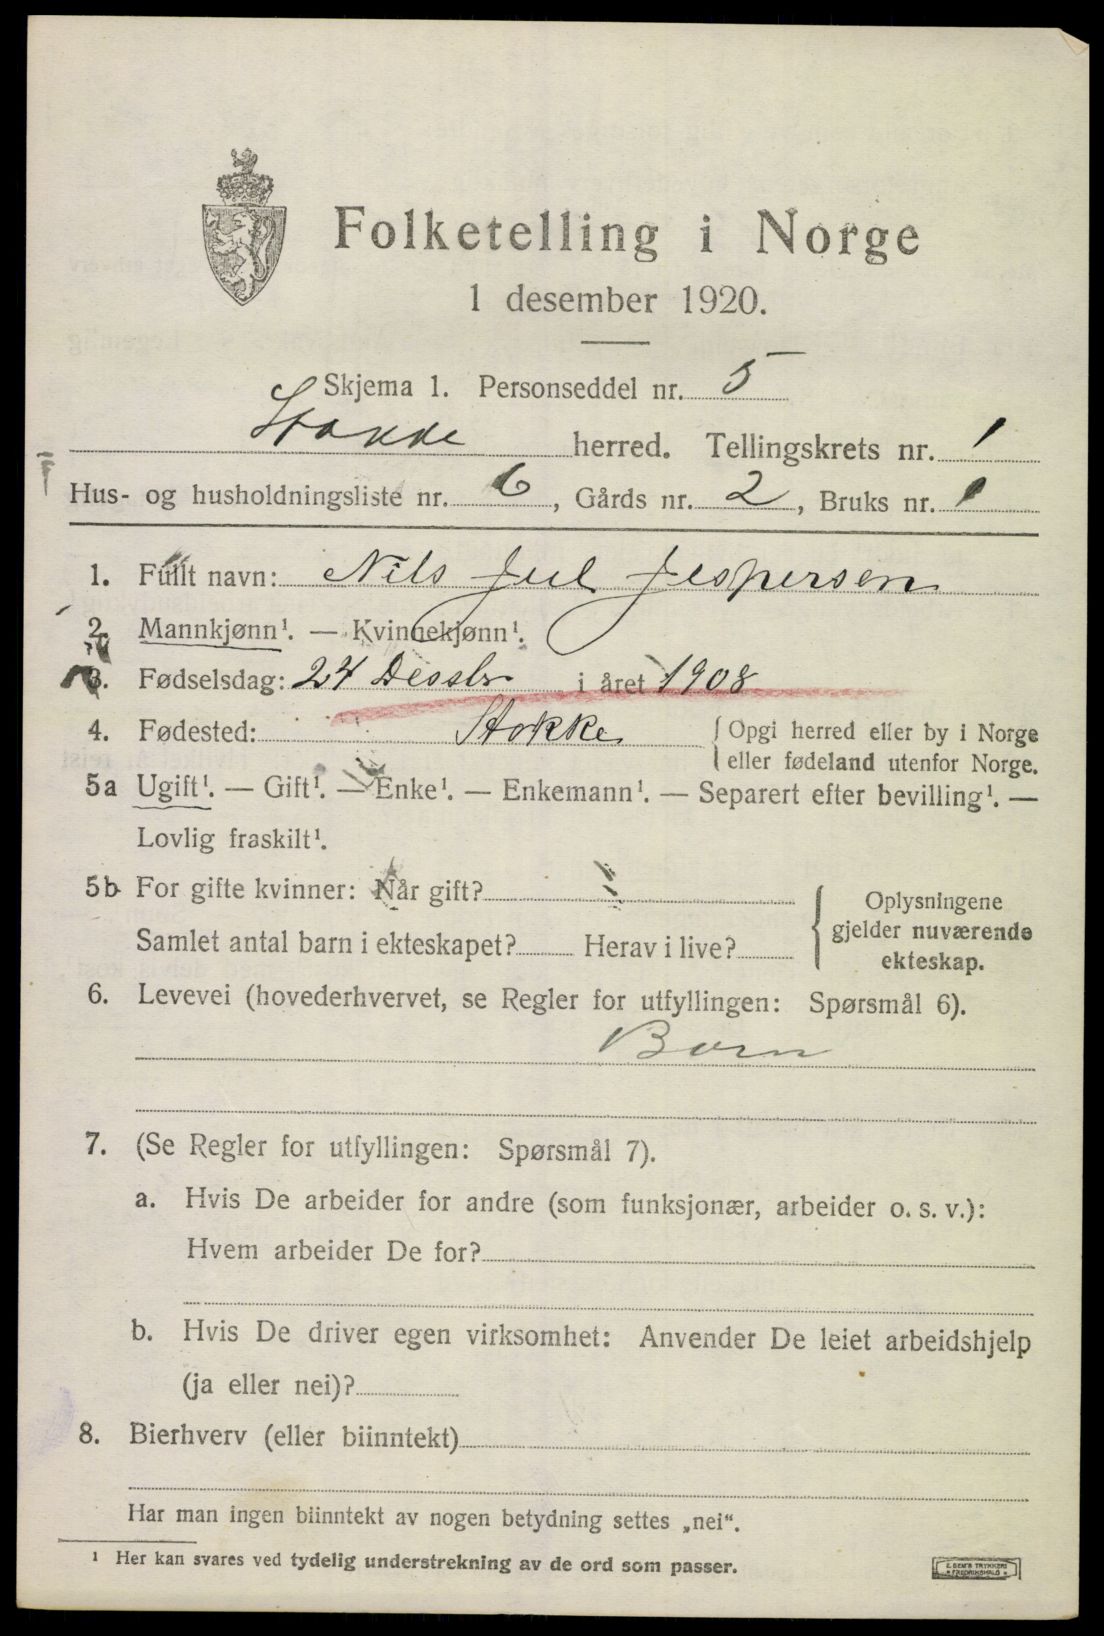 Folketelling i Norge
1 desember 1920.
Skjema 1. Personseddel nr. 5
Stokke herred. Tellingskrets nr. 1
Hus- og husholdningsliste nr. 6, Gårds nr. 2, Bruks nr. 1
1. Fullt navn: Nils Jul Jespersen
2. Mannkjønn¹. — Kvinnekjønn¹.
3. Fødselsdag: 24 Dessbr i året 1908
4. Fødested: Stokke { Opgi herred eller by i Norge
eller fødeland utenfor Norge.
5a Ugift¹. — Gift¹. — Enke¹. — Enkemann¹. — Separert efter bevilling¹. —
Lovlig fraskilt¹.
5b For gifte kvinner: Når gift?
Samlet antal barn i ekteskapet? Herav i live?
{ Oplysningene
gjelder nuværende
ekteskap.
6. Levevei (hovederhvervet, se Regler for utfyllingen: Spørsmål 6).
Barn
7. (Se Regler for utfyllingen: Spørsmål 7).
a. Hvis De arbeider for andre (som funksjonær, arbeider o. s. v.):
Hvem arbeider De for?
b. Hvis De driver egen virksomhet: Anvender De leiet arbeidshjelp
(ja eller nei)?
8. Bierhverv (eller biinntekt)
Har man ingen biinntekt av nogen betydning settes „nei“.
¹ Her kan svares ved tydelig understrekning av de ord som passer.
E. SEM'S TRYKKERI
* FREDRIKSHALD *